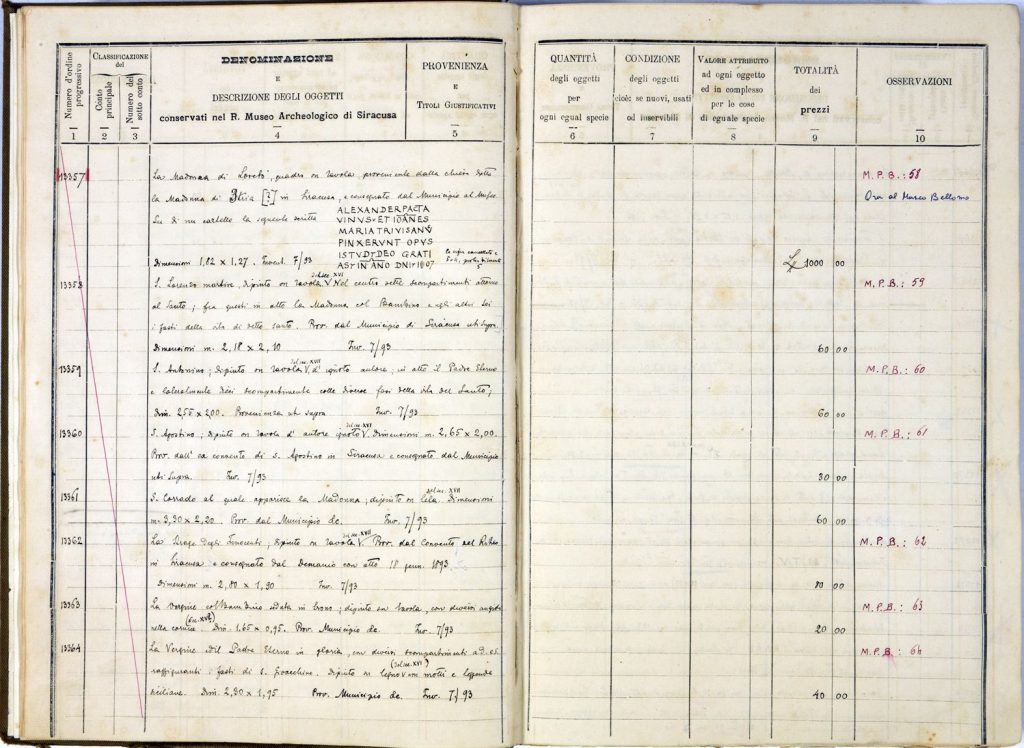 Numero d'ordine progressivo
CLASSIFICAZIONE del
Conto principale
Numero del sotto conto
DENOMINAZIONE
E
DESCRIZIONE DEGLI OGGETTI
conservati nel R. Museo Archeologico di Siracusa
PROVENIENZA
E
TITOLI GIUSTIFICATIVI
1 2 3 4 5
13357
La Madonna di Loreto, quadro in tavola proveniente dalla chiesa della
la Madonna di Itria [?] in Siracusa, e consegnato dal Municipio al Museo
Su di un cartello la seguente scritta
ALEXANDER PACTA
VINVS ET IOANES
MARIA TRIVISANV
PINXERVNT OPVS
ISTVDT DEO GRATI
AST IN ANO DNI 1607
Dimensioni 1,82 x 1,27. Invent. 7/93
13358
S. Lorenzo martire, dipinto in tavola V Nel centro scompartimenti attorno
del sec. XVI
al Santo; fra questi in alto la Madonna col Bambino e negli altri sei
i fasti della vita di detto santo. Prov. dal Municipio di Siracusa uti supra.
Dimensioni m. 2,18 x 2,10 Inv. 7/93
13359
del sec. XVII
S. Antonino; dipinto in tavola V d'ignoto autore; in alto il Padre Eterno
e lateralmente dieci scompartimenti colle diverse fasi della vita del Santo;
Dim. 2,55 x 2,00. Provenienza ut supra Inv. 7/93
13360
del sec. XVI
S. Agostino; dipinto in tavola d'autore ignoto V. Dimensioni m. 2,65 x 2,00.
Prov. dall' ex convento di S. Agostino in Siracusa e consegnato dal Municipio
uti supra. Inv. 7/93
13361
del sec. XVII
S. Corrado al quale apparisce la Madonna; dipinto in tela. Dimensioni
m. 3,30 x 2,20. Prov. dal Municipio de. Inv. 7/93
13362
del sec. XVII
La Strage degli Innocenti; dipinto in tavola V. Prov. dal Convento del
in Siracusa e consegnato dal Demanio con atto 18 genn. 1893.
Dimensioni m. 2,80 x 1,90 Inv. 7/93
13363
La Vergine col Bambino seduta in trono; dipinto in tavola, con diversi angeli
nella cornice. (sec. XVI) Dim. 1,65 x 0,95. Prov. Municipio de. Inv. 7/93
13364
La Vergine ed il Padre Eterno in gloria, con diversi scompartimenti ad es.
raffiguranti i fasti di S. Gioacchino. Dipinto in legno V con motti e leggende
(del sec. XVI)
siciliane. Dim. 2,30 x 1,95 Prov. Municipio de. Inv. 7/93
QUANTITÀ
degli oggetti
per
ogni egual specie
CONDIZIONE
degli oggetti
cioè: se nuovi, usati
od inservibili
VALORE ATTRIBUITO
ad ogni oggetto
ed in complesso
per le cose
di eguale specie
TOTALITÀ
dei
prezzi
OSSERVAZIONI
6 7 8 9 10
M.P.B.: 58
Ora al Museo Bellomo
1000 00
M.P.B.: 59
60 00
M.P.B.: 60
60 00
M.P.B.: 61
30 00
60 00
M.P.B.: 62
80 00
M.P.B.: 63
20 00
M.P.B.: 64
40 00